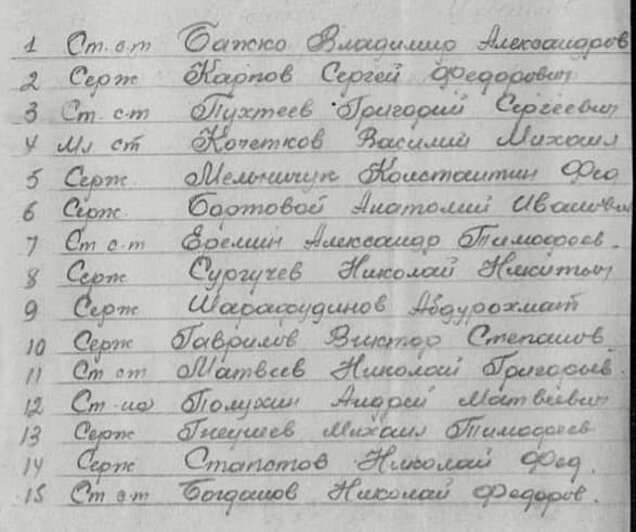 1 Ст. с-т Бажко Владимир Александров
2 Серж Карпов Сергей Федорович
3 Ст. с-т Пухтеев Григорий Сергеевич
4 Мл ст Кочетков Василий Михаил
5 Серж Мельничук Константин Фед
6 Серж Бортовой Анатолий Иванович
7 Ст с-т Еремин Александр Тимофеев.
8 Серж Сургучев Николай Никитич
9 Серж Шарафудинов Абдурохмат
10 Серж Гаврилов Виктор Степанов.
11 Ст ст Матвеев Николай Григорьев.
12 Полухин Андрей Матвеевич
13 Серж Гнеушев Михаил Тимофеев
14 Серж Николай Фед.
15 Ст с-т Богданов Николай Федоров.